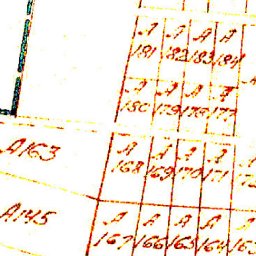 A A A A
181 182 183 184
A A A A
180 179 178 177
A163 A A A A
168 169 170 171
A145 A A A A
167 166 165 164 163